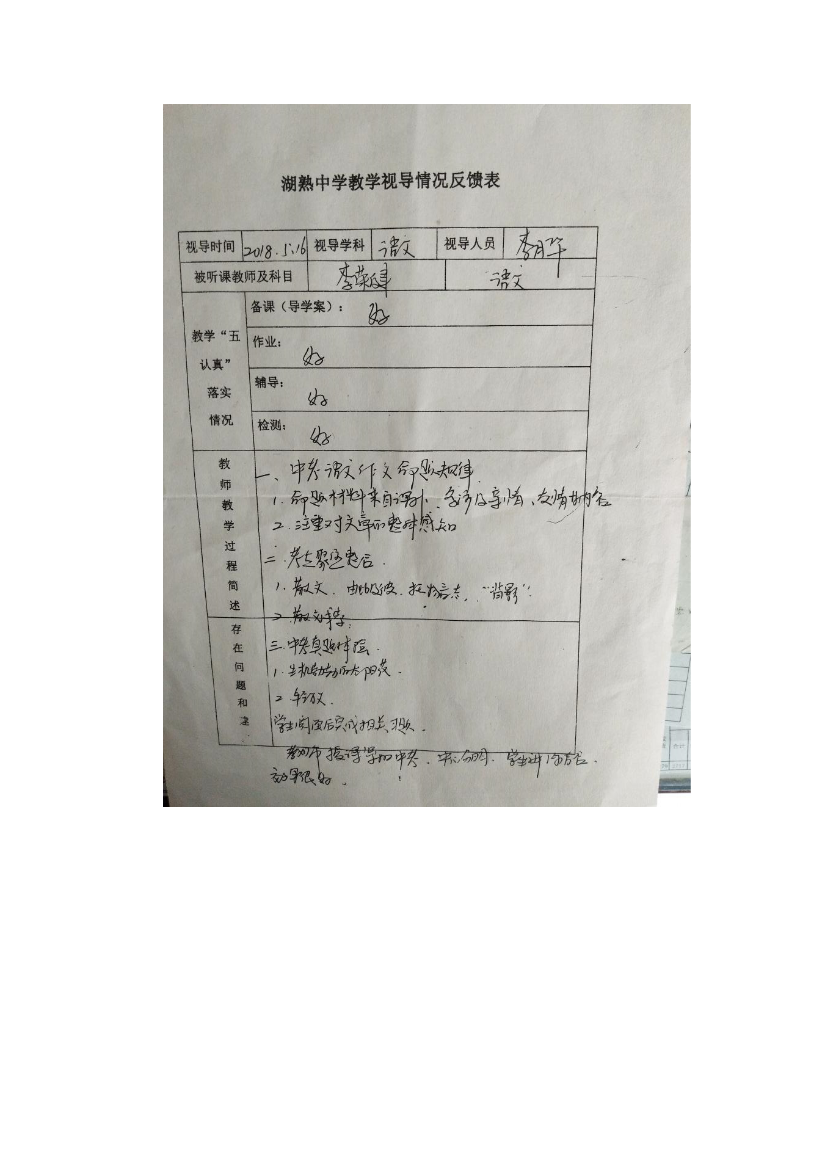 湖熟中学教学视导情况反馈表
视导时间 2018.5.16 视导学科 语文 视导人员 李月华
被听课教师及科目 李荣健 语文
教学“五认真”落实情况
备课（导学案）： 好
作业： 好
辅导： 好
检测： 好
教师教学过程简述
一、中考语文作文命题规律
1. 命题材料来自课外、多涉及亲情、友情等内容
2. 注重对文章的整体感知
二、考点
1. 散文、由此及彼、托物言志、“背影”
2. 散文
存在问题和建
三、中考真题体验.
1. 生机勃勃的太阳花.
2.
学生阅读后完成相关习题.
教师 中考、学生
效果很好.